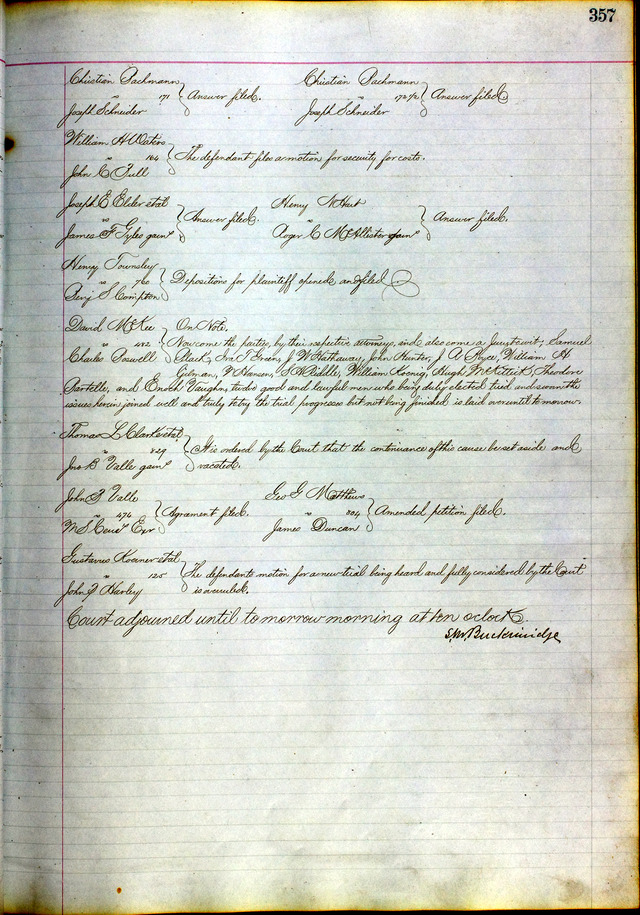 357
Christian Pachmann
" 171 } Answer filed.
Joseph Schneider
Christian Pachmann
" 172½ } Answer filed
Joseph Schneider
William H Waters
" 164 } The defendant files a motion for security for costs.
John C Tull
Joseph E Elder et al
" } Answer filed.
James F Gyles
Henry N Hart
" } Answer filed.
Roger C McAllister
Henry Townsley
" 760 } Depositions for plaintiff opened and filed
Benj S Compton
David McKee } On Note.
" 482 Now come the parties, by their respective attorneys, and also come a Jury towit; Samuel
Charles Boswell Black, T Green, J W Hathaway, John Hunter, J A Bryce, William H
Gilman, W Hanson, S W Biddle, William Koenig, Hugh McKittrick, Theodore
Bartelle, and Enoch Vaughn, twelve good and lawful men who being duly elected tried and sworn the
issues herein joined well and truly to try the trial progresses but not being finished is laid over until to morrow.
Thomas L Clark et al
" 829 } It is ordered by the Court that the continuance of this cause be set aside and
Jno B Valle vacated.
John F Valle
" 476 } Agreement filed.
M S Exr
Geo G Matthews
" 304 } Amended petition filed.
James Duncan
Gustavus Koerner et al
" 125 } The defendants motion for a new trial being heard and fully considered by the Court
John Q Harley is overruled.
Court adjourned until to morrow morning at ten oclock.
S M Breckinridge